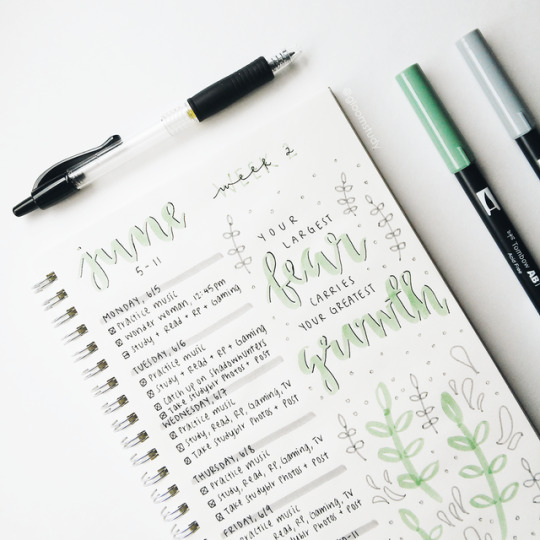 week 2
june
5-11
YOUR
LARGEST
fear
CARRIES
YOUR GREATEST
growth
MONDAY, 6/5
Practice music
Wonder Woman, 12:45pm
Study + Read + RP + Gaming
TUESDAY, 6/6
Practice music
Study + Read + RP + Gaming
Catch up on Shadowhunters
Take Studyblr Photos + Post
WEDNESDAY, 6/7
Practice music
Study, Read, RP, Gaming, TV
Take Studyblr Photos + Post
THURSDAY, 6/8
Practice music
Study, Read, RP, Gaming, TV
Take Studyblr Photos + Post
FRIDAY, 6/9
Practice music
Read, RP, Gaming, TV
Studyblr Photos + Post
Tombow